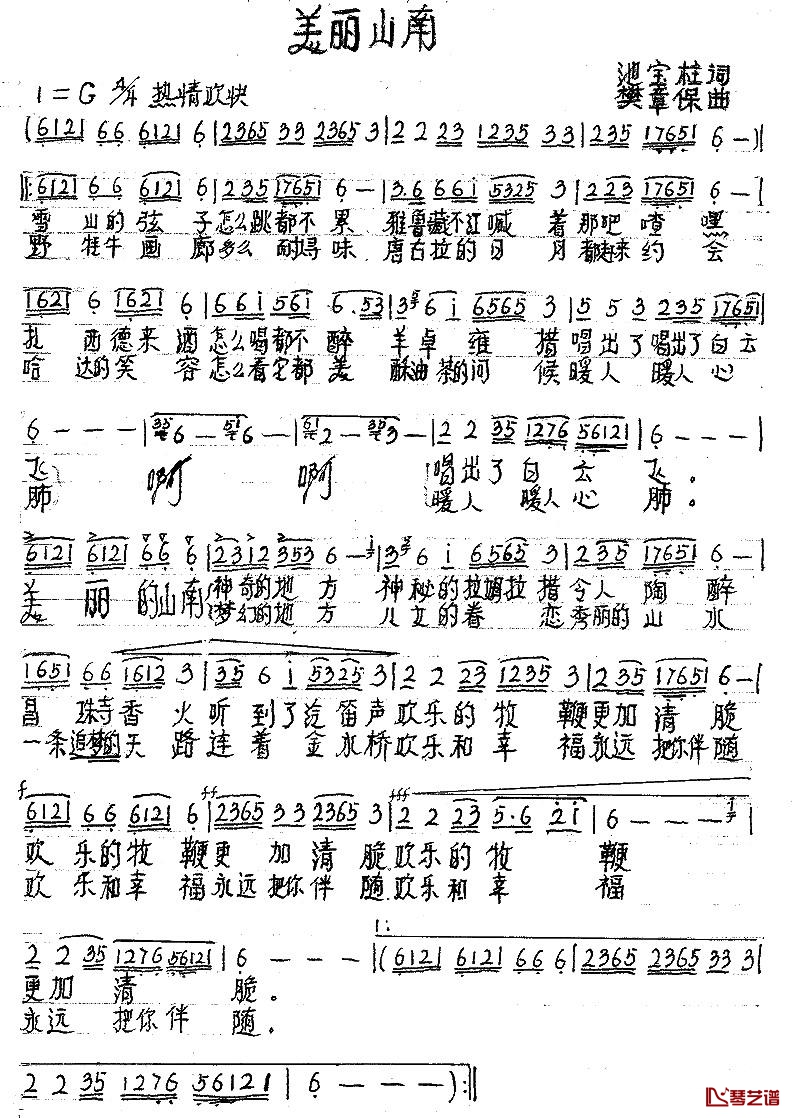 美丽山南
池宝柱词
1=G 4/4 热情欢快
樊章保曲
(6121 66 6121 6|2365 33 2365 3|2 2 23 1235 33|235 17651 6 —)|
‖:6121 66 6121 6|235 17651 6 —|3·6 66i 5325 3|223 17651 6 —|
雪山的弦子怎么跳都不累 雅鲁藏不江喊着那吧喳嘿
野牦牛画廊多么耐寻味 唐古拉的日月都赶来约会
1621 6 1621 6|66i 56i 6·53|35 6 i 6565 3|5 5 3 235 17651|
扎西德来酒怎么喝都不醉 羊卓雍措唱出了唱出了白云
哈达的笑容怎么看它都美 酥油茶的问候暖人暖人心
6 — — —|6 — 6 —|2 — 3 —|2 2 35 1276 56121|6 — —|
飞 啊 啊 唱出了白云飞。
肺 暖人暖人心肺。
6121 6121 66 6|2312 353 6 —|3 6 i 6565 3|235 17651 6 —|
美丽的山南神奇的地方 神秘的拉姆拉措令人陶醉
梦幻的地方 儿女的眷恋秀丽的山水
1651 66 1612 3|35 6 i 5325 3|2 2 23 1235 3|235 17651 6 —|
昌珠寺香火听到了汽笛声欢乐的牧鞭更加清脆
一条追梦的天路连着金水桥欢乐和幸福永远把你伴随
f ff fff
6121 66 6121 6|2365 33 2365 3|2 2 23 5·6 2i|6 — —|
欢乐的牧鞭更加清脆欢乐的牧鞭
欢乐和幸福永远把你伴随欢乐和幸福
1:
2 2 35 1276 56121|6 — — —|(6121 6121 66 6|2365 2365 33 3|
更加清脆。
永远把你伴随。
2 2 35 1276 56121|6 — — —):‖
琴艺谱